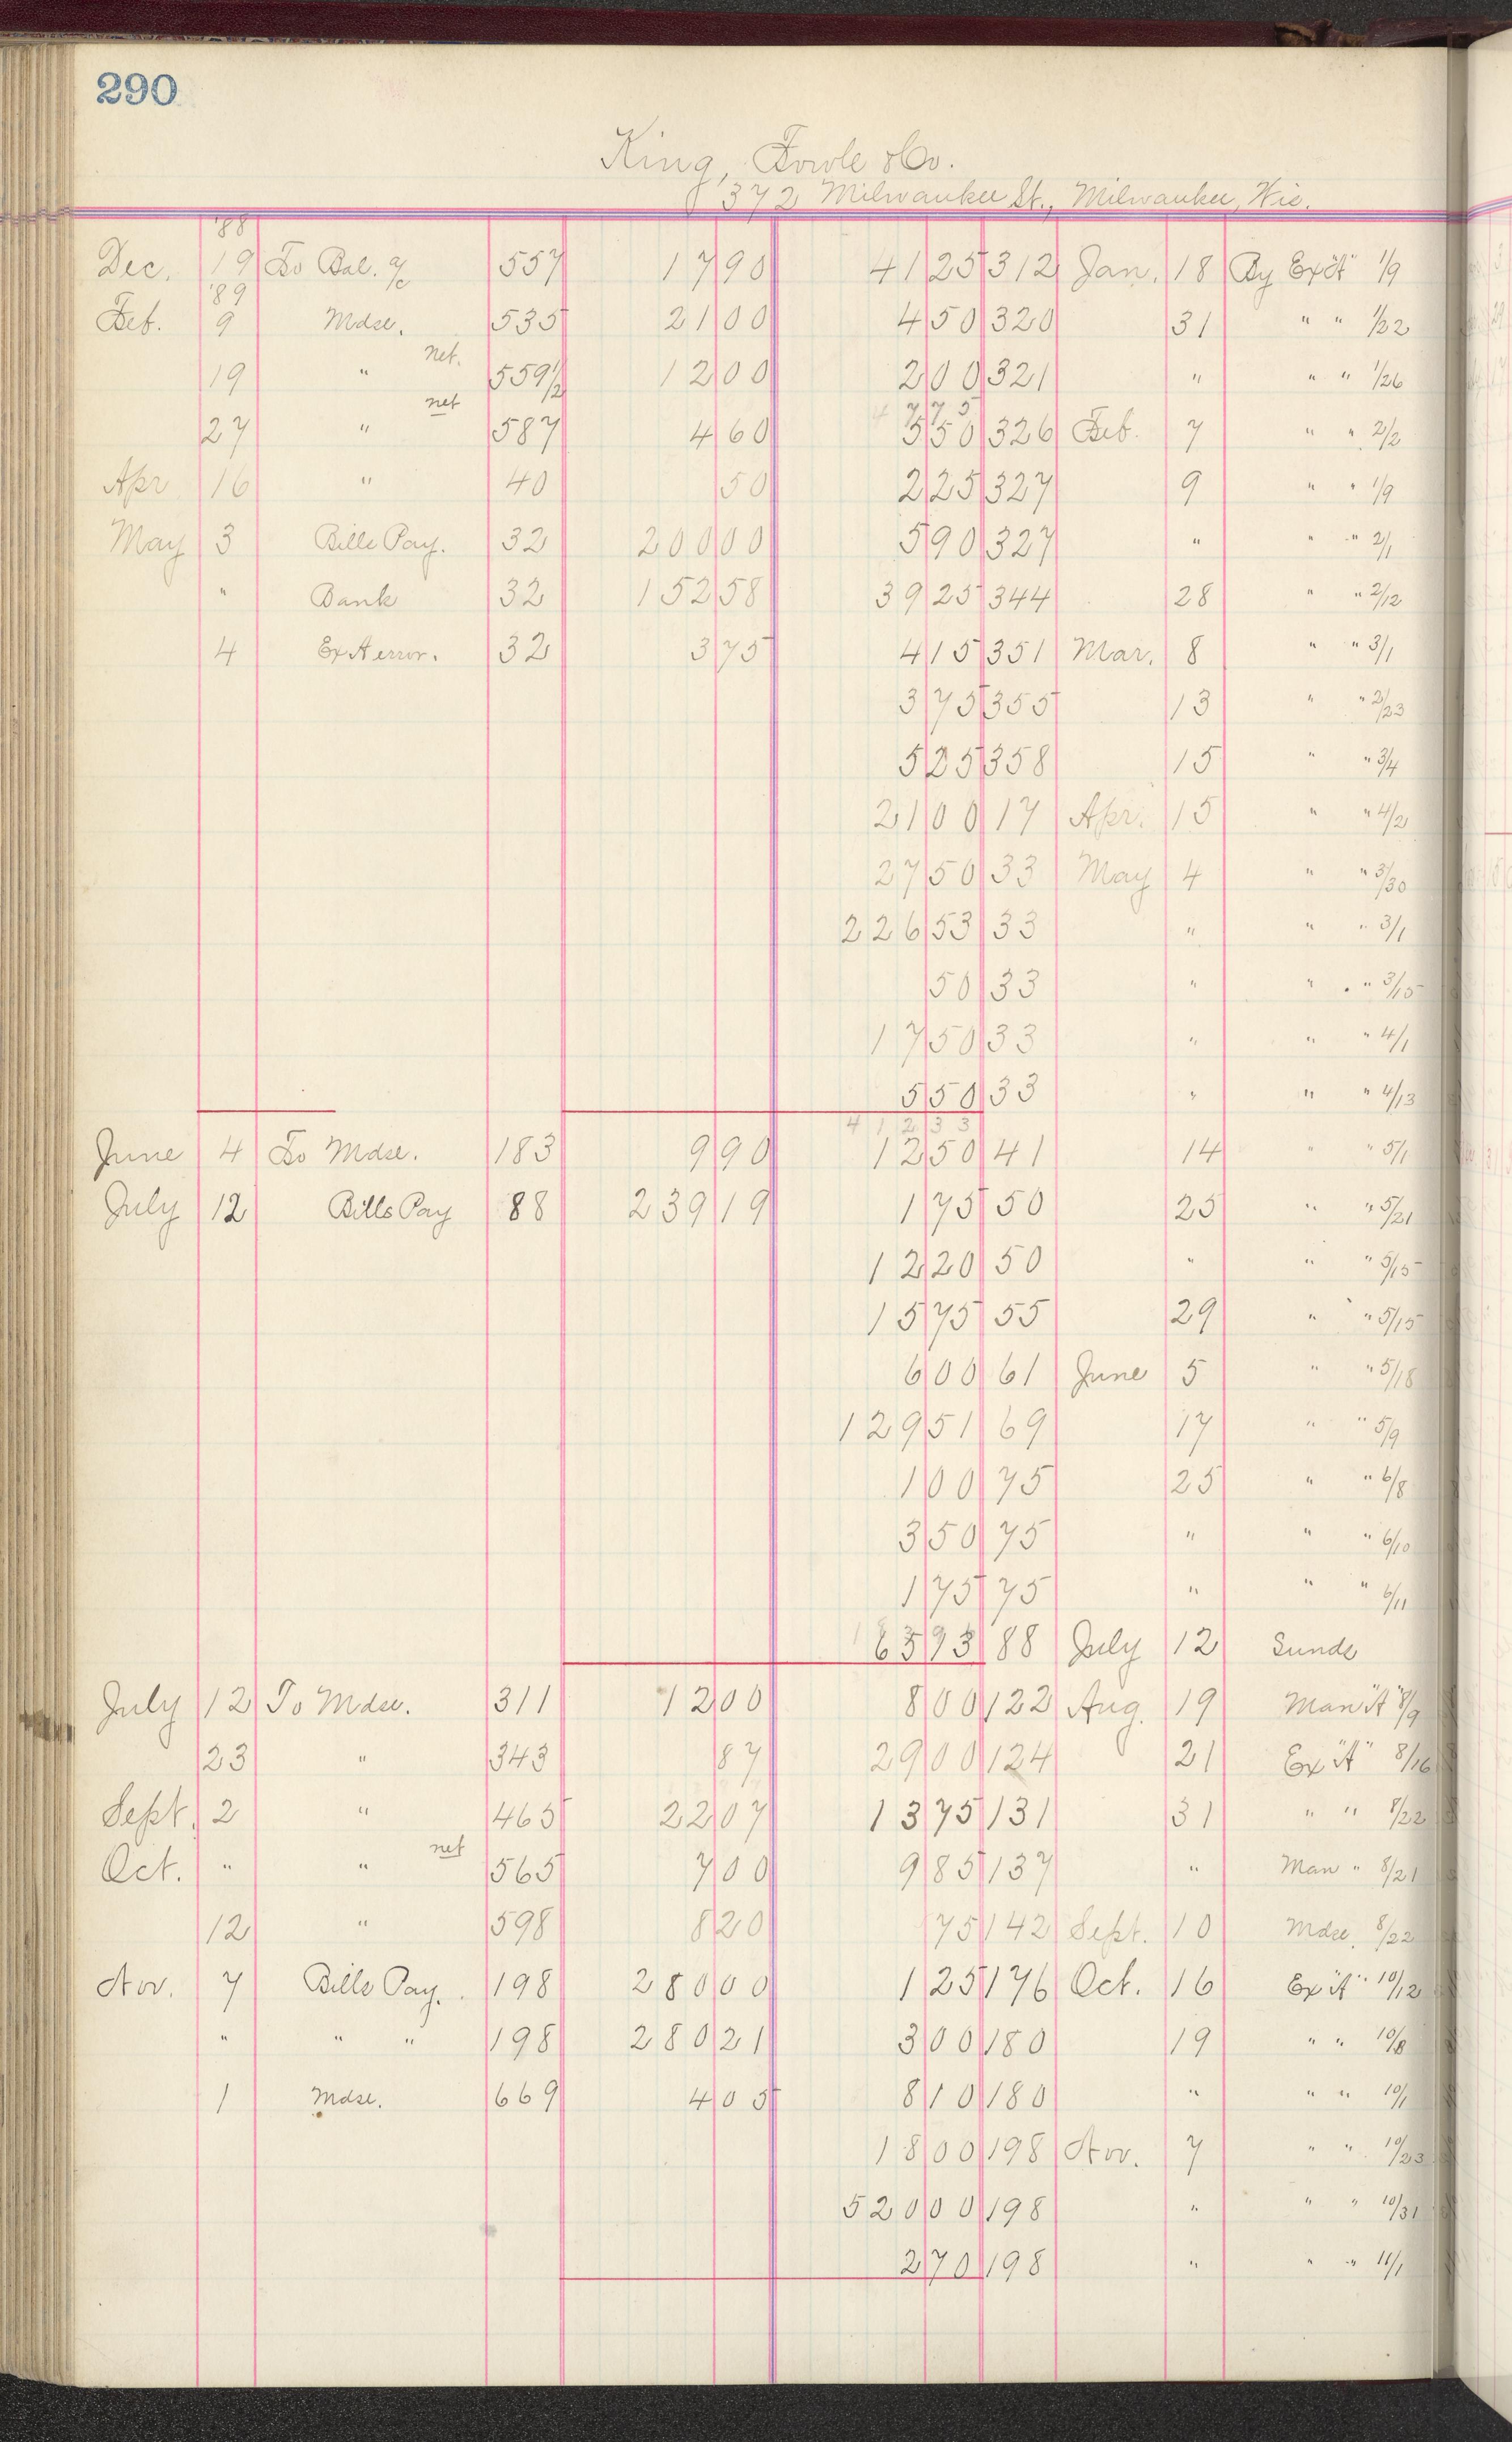 290
King, Fowle & Co.
372 Milwaukee St., Milwaukee, Wis.
'88
Dec. 19 To Bal. a/c 557 17 90 41 25 312 Jan. 18 By Ex "A" 1/9
'89
Feb. 9 Mdse. 535 21 00 4 50 320 31 " " 1/22
net.
19 " 559 1/2 12 00 2 00 321 " " " 1/26
net 4 7 7 5
27 " 587 4 60 5 50 326 Feb. 7 " " 2/2
Apr 16 " 40 50 2 25 327 9 " " 1/9
May 3 Bills Pay. 32 200 00 5 90 327 " " " 2/1
" Bank 32 152 58 39 25 344 28 " " 2/12
4 Ex A error. 32 3 75 4 15 351 Mar. 8 " " 3/1
3 75 355 13 " " 2/23
5 25 358 15 " " 3/4
21 00 17 Apr. 15 " " 4/2
27 50 33 May 4 " " 3/30
226 53 33 " " " 3/1
50 33 " " " 3/15
17 50 33 " " " 4/1
5 50 33 " " " 4/13
4 1 2 3 3
June 4 To Mdse. 183 9 90 12 50 41 14 " " 5/1
July 12 Bills Pay 88 239 19 1 75 50 25 " " 5/21
12 20 50 " " " 5/15
15 75 55 29 " " 5/15
6 00 61 June 5 " " 5/18
129 51 69 17 " " 5/9
1 00 75 25 " " 6/8
3 50 75 " " " 6/10
1 75 75 " " " 6/11
65 93 88 July 12 Sunds
July 12 To Mdse. 311 12 00 8 00 122 Aug. 19 Man "A" 8/9
23 " 343 87 29 00 124 21 Ex "A" 8/16
Sept. 2 " 465 22 07 13 75 131 31 " " 8/22
net
Oct. " " 565 7 00 9 85 137 " Man " 8/21
12 " 598 8 20 75 142 Sept. 10 Mdse. 8/22
Nov. 7 Bills Pay. 198 280 00 1 25 176 Oct. 16 Ex "A" 10/12
" " " 198 280 21 3 00 180 19 " " 10/8
1 Mdse. 669 4 05 8 10 180 " " " 10/1
18 00 198 Nov. 7 " " 10/23
520 00 198 " " " 10/31
2 70 198 " " " 11/1